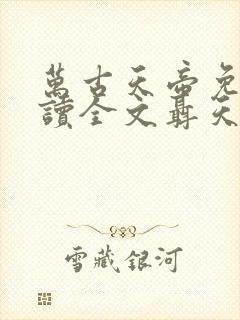 萬古天帝免
讀全文聶天
雪藏銀河